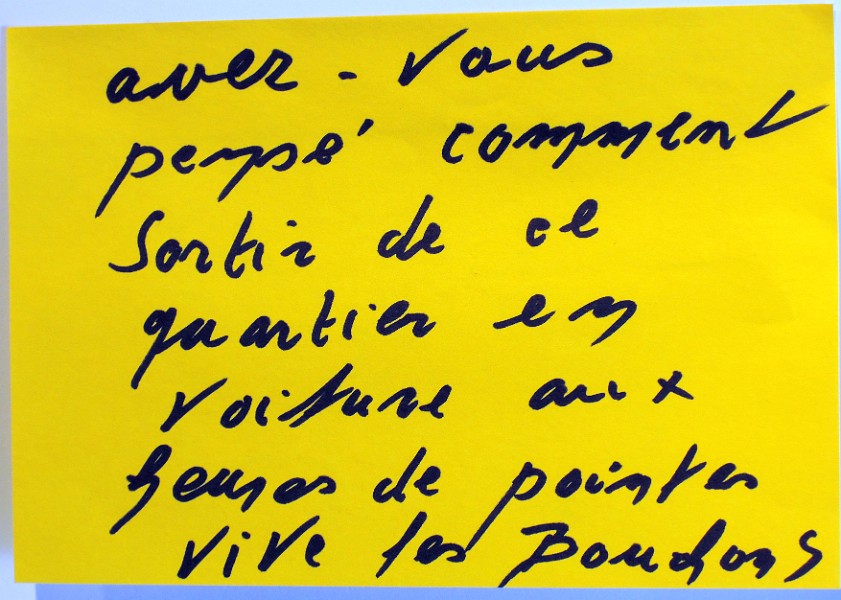 avez - vous
pensé comment
Sortir de ce
quartier en
voiture aux
heures de pointes
vive les Bouchons